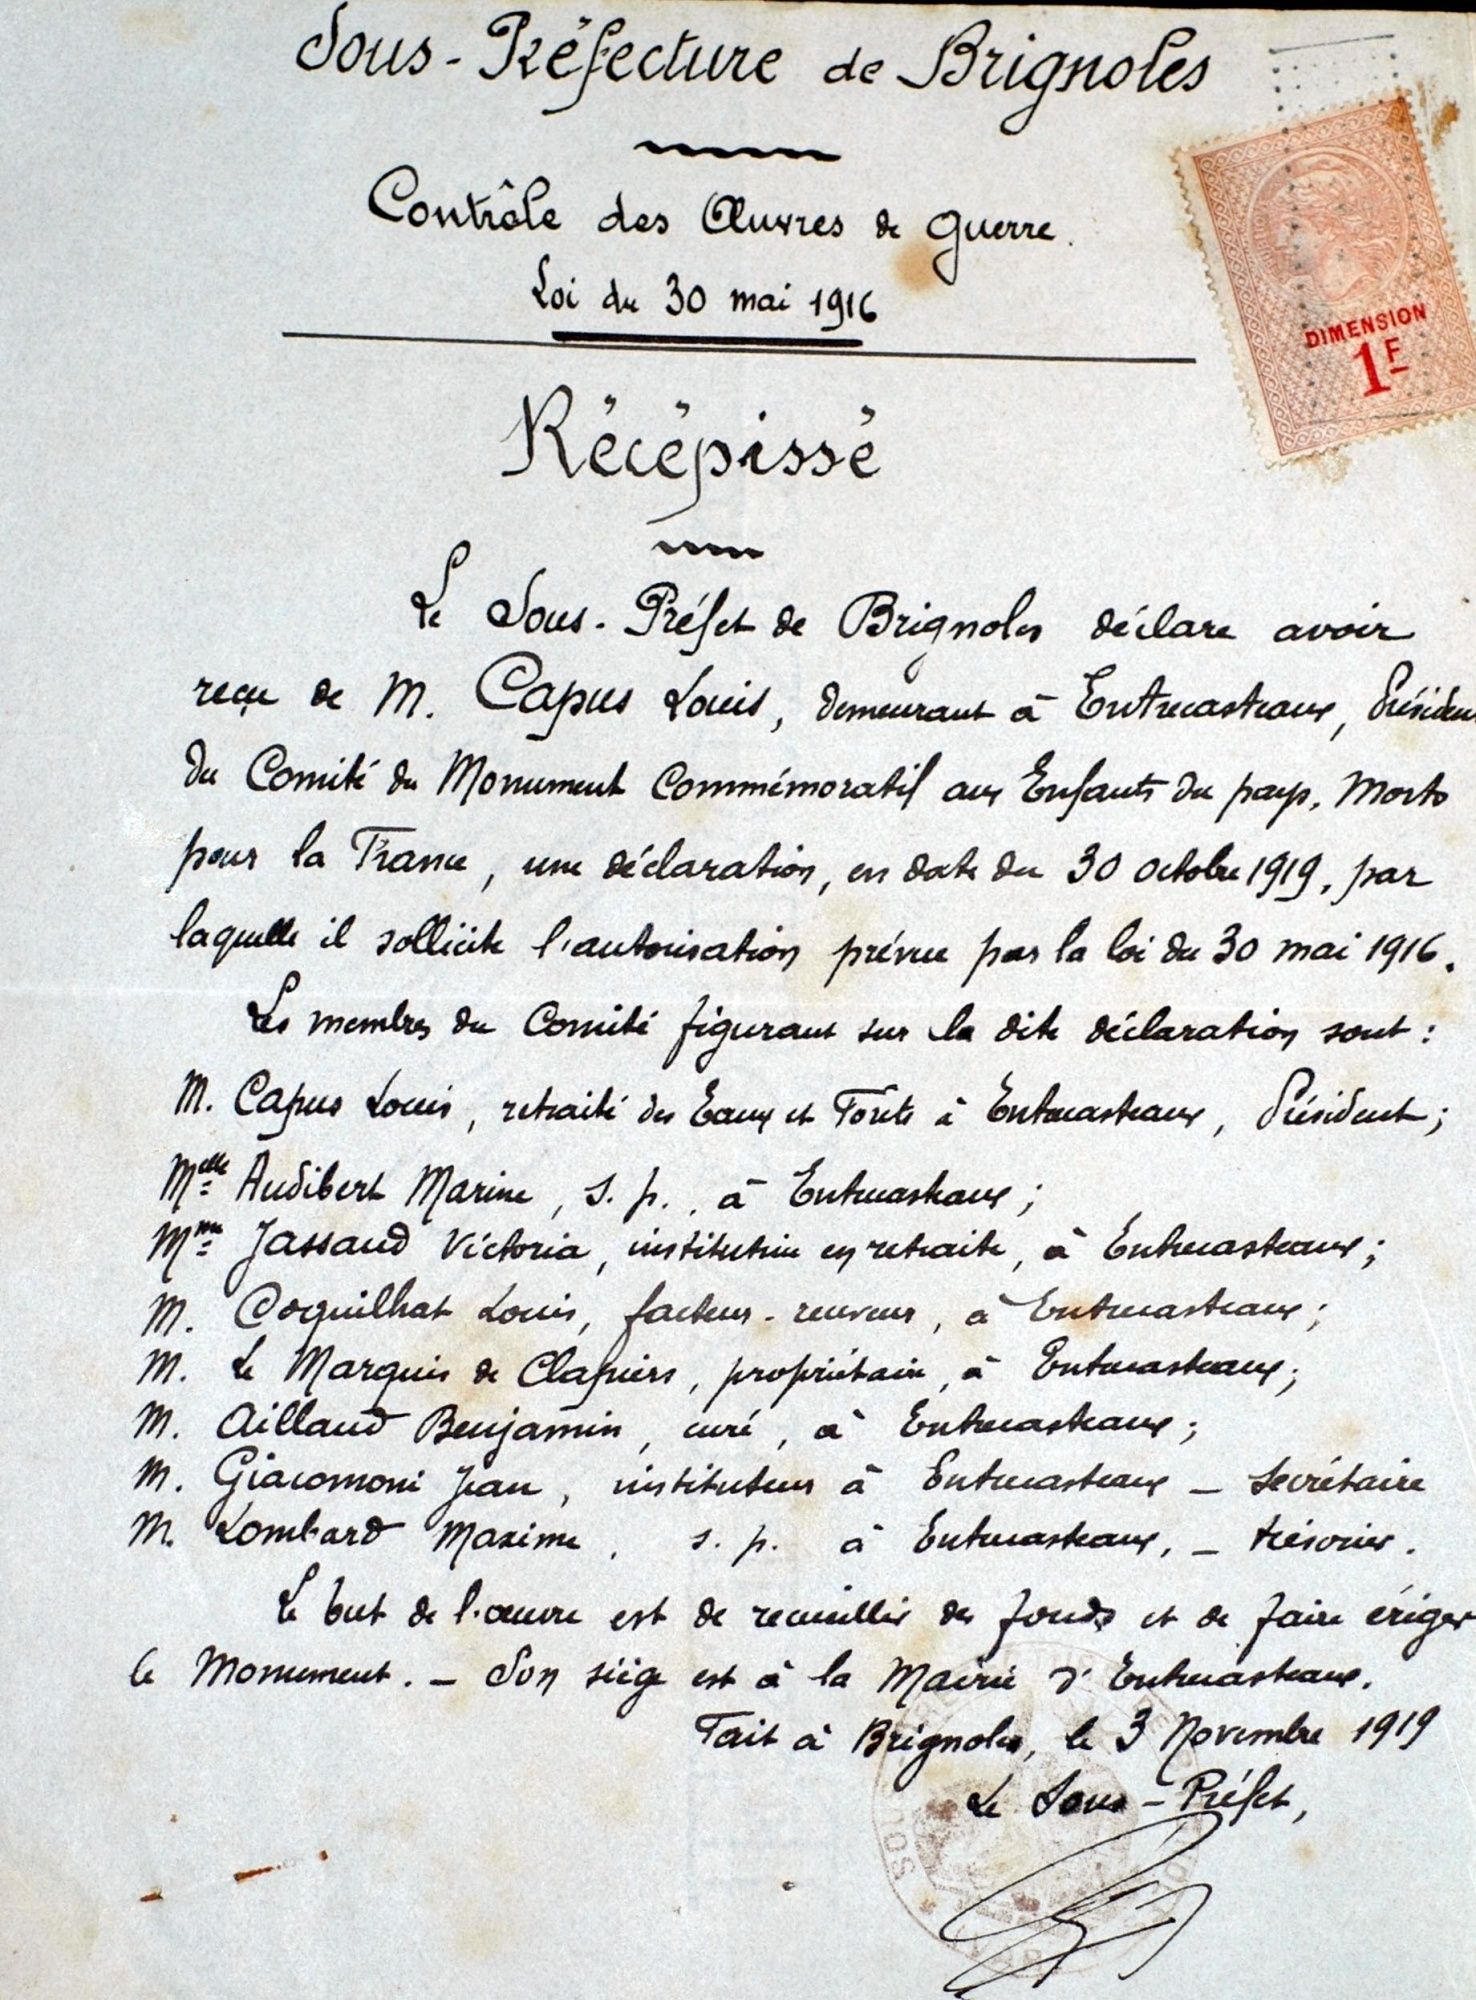 Sous-Préfecture de Brignoles
Contrôle des Œuvres de guerre.
Loi du 30 mai 1916
DIMENSION
1F
Récépissé
Le Sous-Préfet de Brignoles déclare avoir
reçu de M. Capus Louis, demeurant à Entrecasteaux, Présiden
du Comité du Monument Commémoratif aux Enfants du pays, Morts
pour la France, une déclaration, en date du 30 octobre 1919, par
laquelle il sollicite l'autorisation prévue par la loi du 30 mai 1916.
Les membres du Comité figurant sur la dite déclaration sont :
M. Capus Louis, retraité des Eaux et Forêts à Entrecasteaux, Président ;
Melle Audibert Marine, s. p., à Entrecasteaux ;
Mme Jassaud Victoria, institutrice en retraite, à Entrecasteaux ;
M. Coquilhat Louis, facteur-receveur, à Entrecasteaux ;
M. Le Marquis de Clapiers, propriétaire, à Entrecasteaux ;
M. Aillaud Benjamin, curé, à Entrecasteaux ;
M. Giacomoni Jean, instituteur à Entrecasteaux - Secrétaire
M. Lombard Maxime, s. p. à Entrecasteaux, - trésorier.
Le but de l'œuvre est de recueillir des fonds et de faire ériger
le Monument. - Son siège est à la Mairie d'Entrecasteaux.
Fait à Brignoles, le 3 Novembre 1919
Le Sous-Préfet,